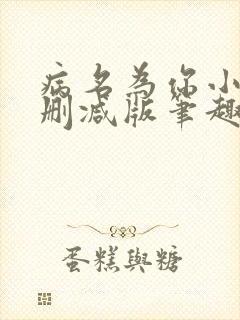 病名為你小
删减版笔趣
蛋糕與糖